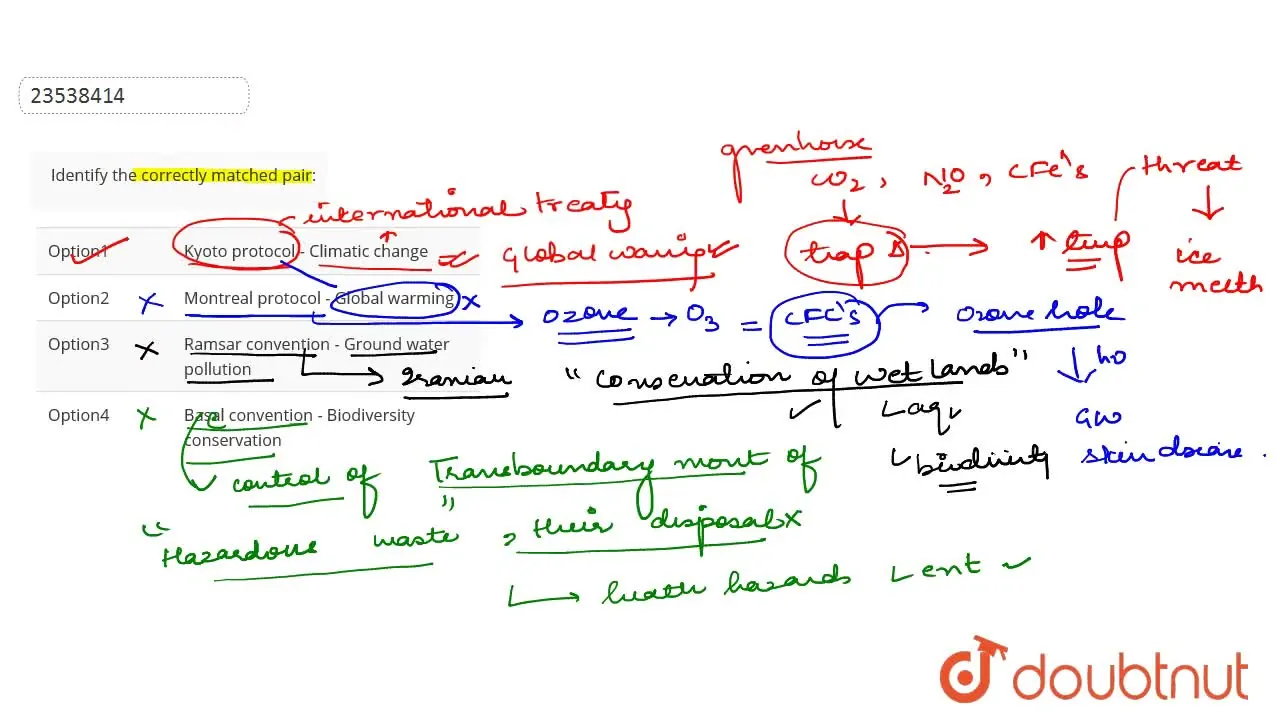 23538414
Identify the correctly matched pair:
Option1 Kyoto protocol - Climatic change
Option2 Montreal protocol - Global warming
Option3 Ramsar convention - Ground water
pollution
Option4 Basal convention - Biodiversity
conservation
international treaty
Global waming
greenhouse
CO2, N2O, CFC's
trap
↑ temp
threat
ice
ozone → O3 = CFC's
ozone hole
Iranian "Conservation of wetlands"
skin disease
control of Transboundary of
"Hazardous waste", their disposal
hazards
doubtnut